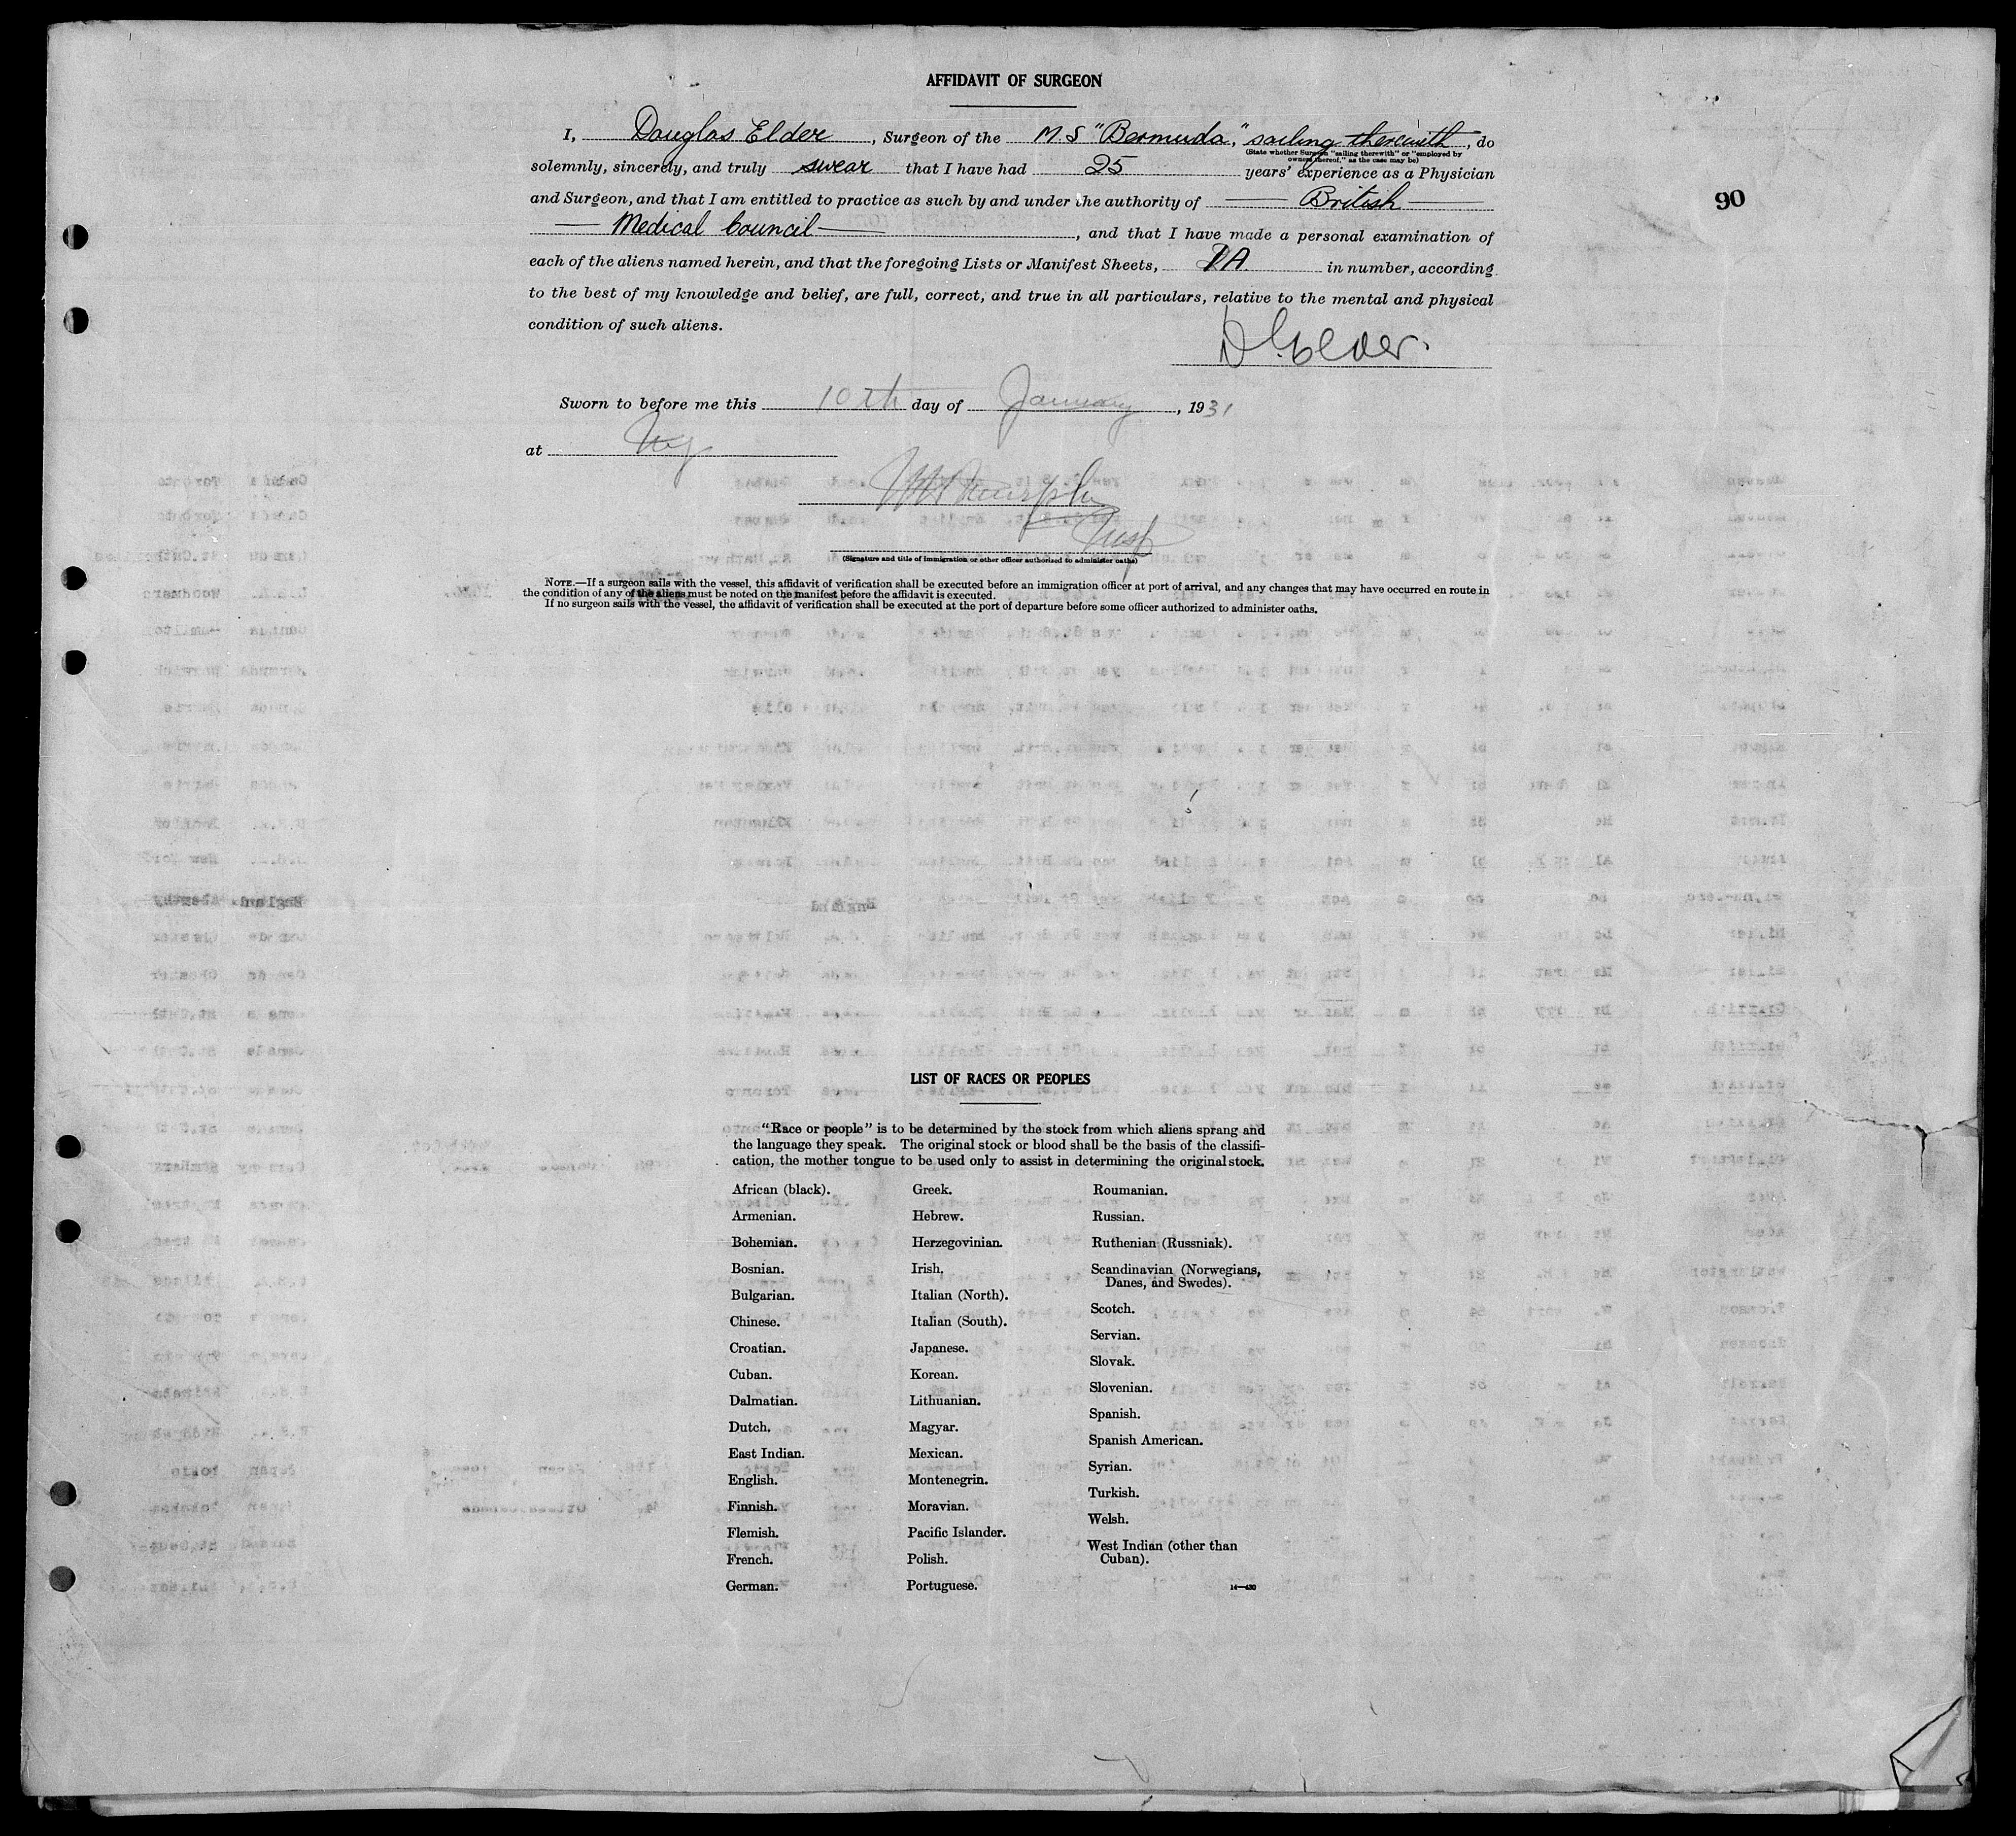 AFFIDAVIT OF SURGEON
I, Douglas Elder, Surgeon of the M.S "Bermuda," sailing therewith, do
(State whether Surgeon "sailing therewith" or "employed by
owners thereof," as the case may be)
solemnly, sincerely, and truly swear that I have had 25 years' experience as a Physician
and Surgeon, and that I am entitled to practice as such by and under the authority of — British —
90
— Medical Council —, and that I have made a personal examination of
each of the aliens named herein, and that the foregoing Lists or Manifest Sheets, in number, according
to the best of my knowledge and belief, are full, correct, and true in all particulars, relative to the mental and physical
condition of such aliens.
D Elder.
Sworn to before me this 10th day of January, 1931
at NY
Murphy
Insp
(Signature and title of Immigration or other officer authorized to administer oaths)
NOTE.—If a surgeon sails with the vessel, this affidavit of verification shall be executed before an immigration officer at port of arrival, and any changes that may have occurred en route in
the condition of any of the aliens must be noted on the manifest before the affidavit is executed.
If no surgeon sails with the vessel, the affidavit of verification shall be executed at the port of departure before some officer authorized to administer oaths.
LIST OF RACES OR PEOPLES
"Race or people" is to be determined by the stock from which aliens sprang and
the language they speak. The original stock or blood shall be the basis of the classifi-
cation, the mother tongue to be used only to assist in determining the original stock.
African (black).
Armenian.
Bohemian.
Bosnian.
Bulgarian.
Chinese.
Croatian.
Cuban.
Dalmatian.
Dutch.
East Indian.
English.
Finnish.
Flemish.
French.
German.
Greek.
Hebrew.
Herzegovinian.
Irish.
Italian (North).
Italian (South).
Japanese.
Korean.
Lithuanian.
Magyar.
Mexican.
Montenegrin.
Moravian.
Pacific Islander.
Polish.
Portuguese.
Roumanian.
Russian.
Ruthenian (Russniak).
Scandinavian (Norwegians,
Danes, and Swedes).
Scotch.
Servian.
Slovak.
Slovenian.
Spanish.
Spanish American.
Syrian.
Turkish.
Welsh.
West Indian (other than
Cuban).
14—430